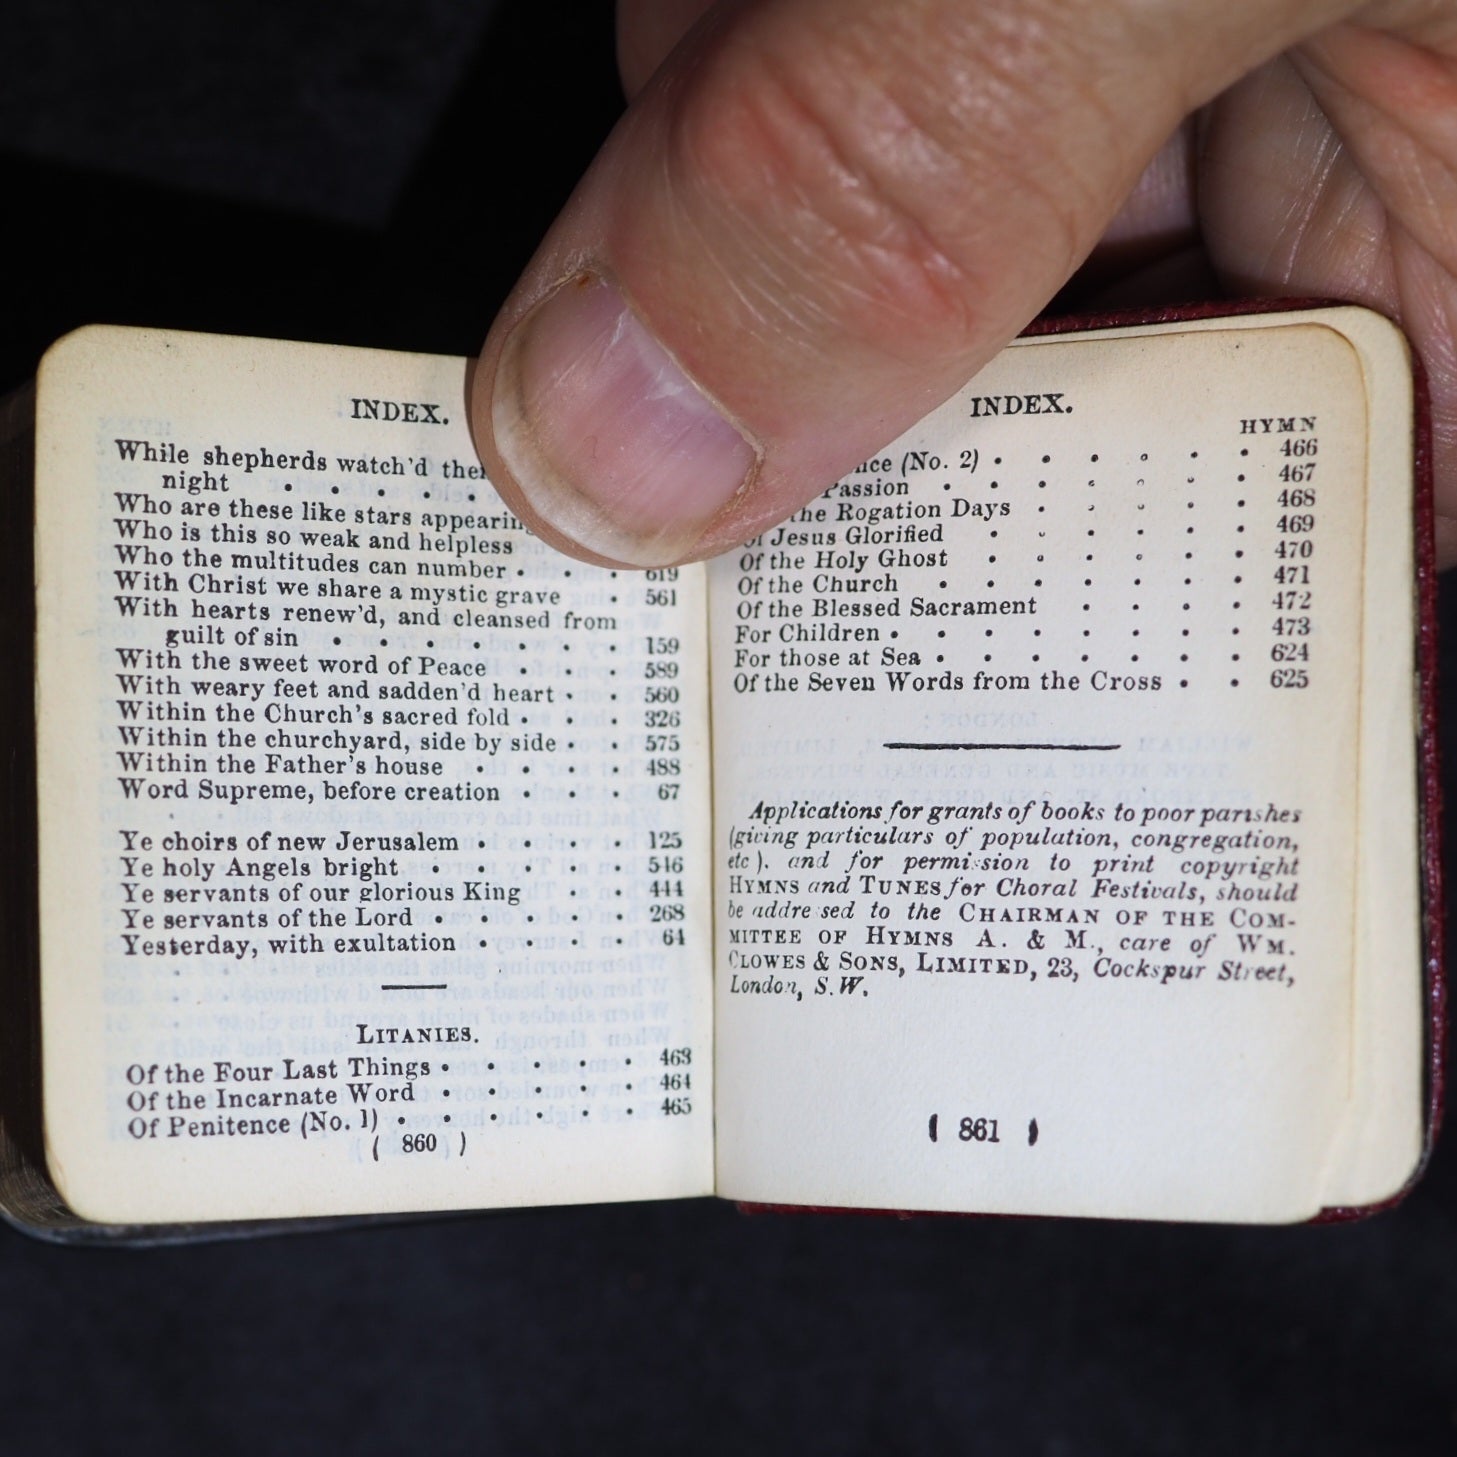 INDEX.
While shepherds watch'd
night . . . . .
Who are these like stars
Who is this so weak and helpless
Who the multitudes can number . . . 619
With Christ we share a mystic grave . 561
With hearts renew'd, and cleansed from
guilt of sin . . . . . . 159
With the sweet word of Peace . . . 589
With weary feet and sadden'd heart . . 560
Within the Church's sacred fold . . . 326
Within the churchyard, side by side . . 575
Within the Father's house . . . . 488
Word Supreme, before creation . . . 67
Ye choirs of new Jerusalem . . . . 125
Ye holy Angels bright . . . . . 546
Ye servants of our glorious King . . 444
Ye servants of the Lord . . . . . 268
Yesterday, with exultation . . . . 64
LITANIES.
Of the Four Last Things . . . . . 463
Of the Incarnate Word . . . . . 464
Of Penitence (No. 1) . . . . . . 465
( 860 )
INDEX.
HYMN
(No. 2) . . . . . . 466
Passion . . . . . . . 467
the Rogation Days . . . . . 468
Of Jesus Glorified . . . . . . 469
Of the Holy Ghost . . . . . . 470
Of the Church . . . . . . . 471
Of the Blessed Sacrament . . . . 472
For Children . . . . . . . . 473
For those at Sea . . . . . . . 624
Of the Seven Words from the Cross . . 625
Applications for grants of books to poor parishes
(giving particulars of population, congregation,
etc ). and for permission to print copyright
HYMNS and TUNES for Choral Festivals, should
be addressed to the CHAIRMAN OF THE COM-
MITTEE OF HYMNS A. & M., care of WM.
CLOWES & SONS, LIMITED, 23, Cockspur Street,
London, S.W.
( 861 )